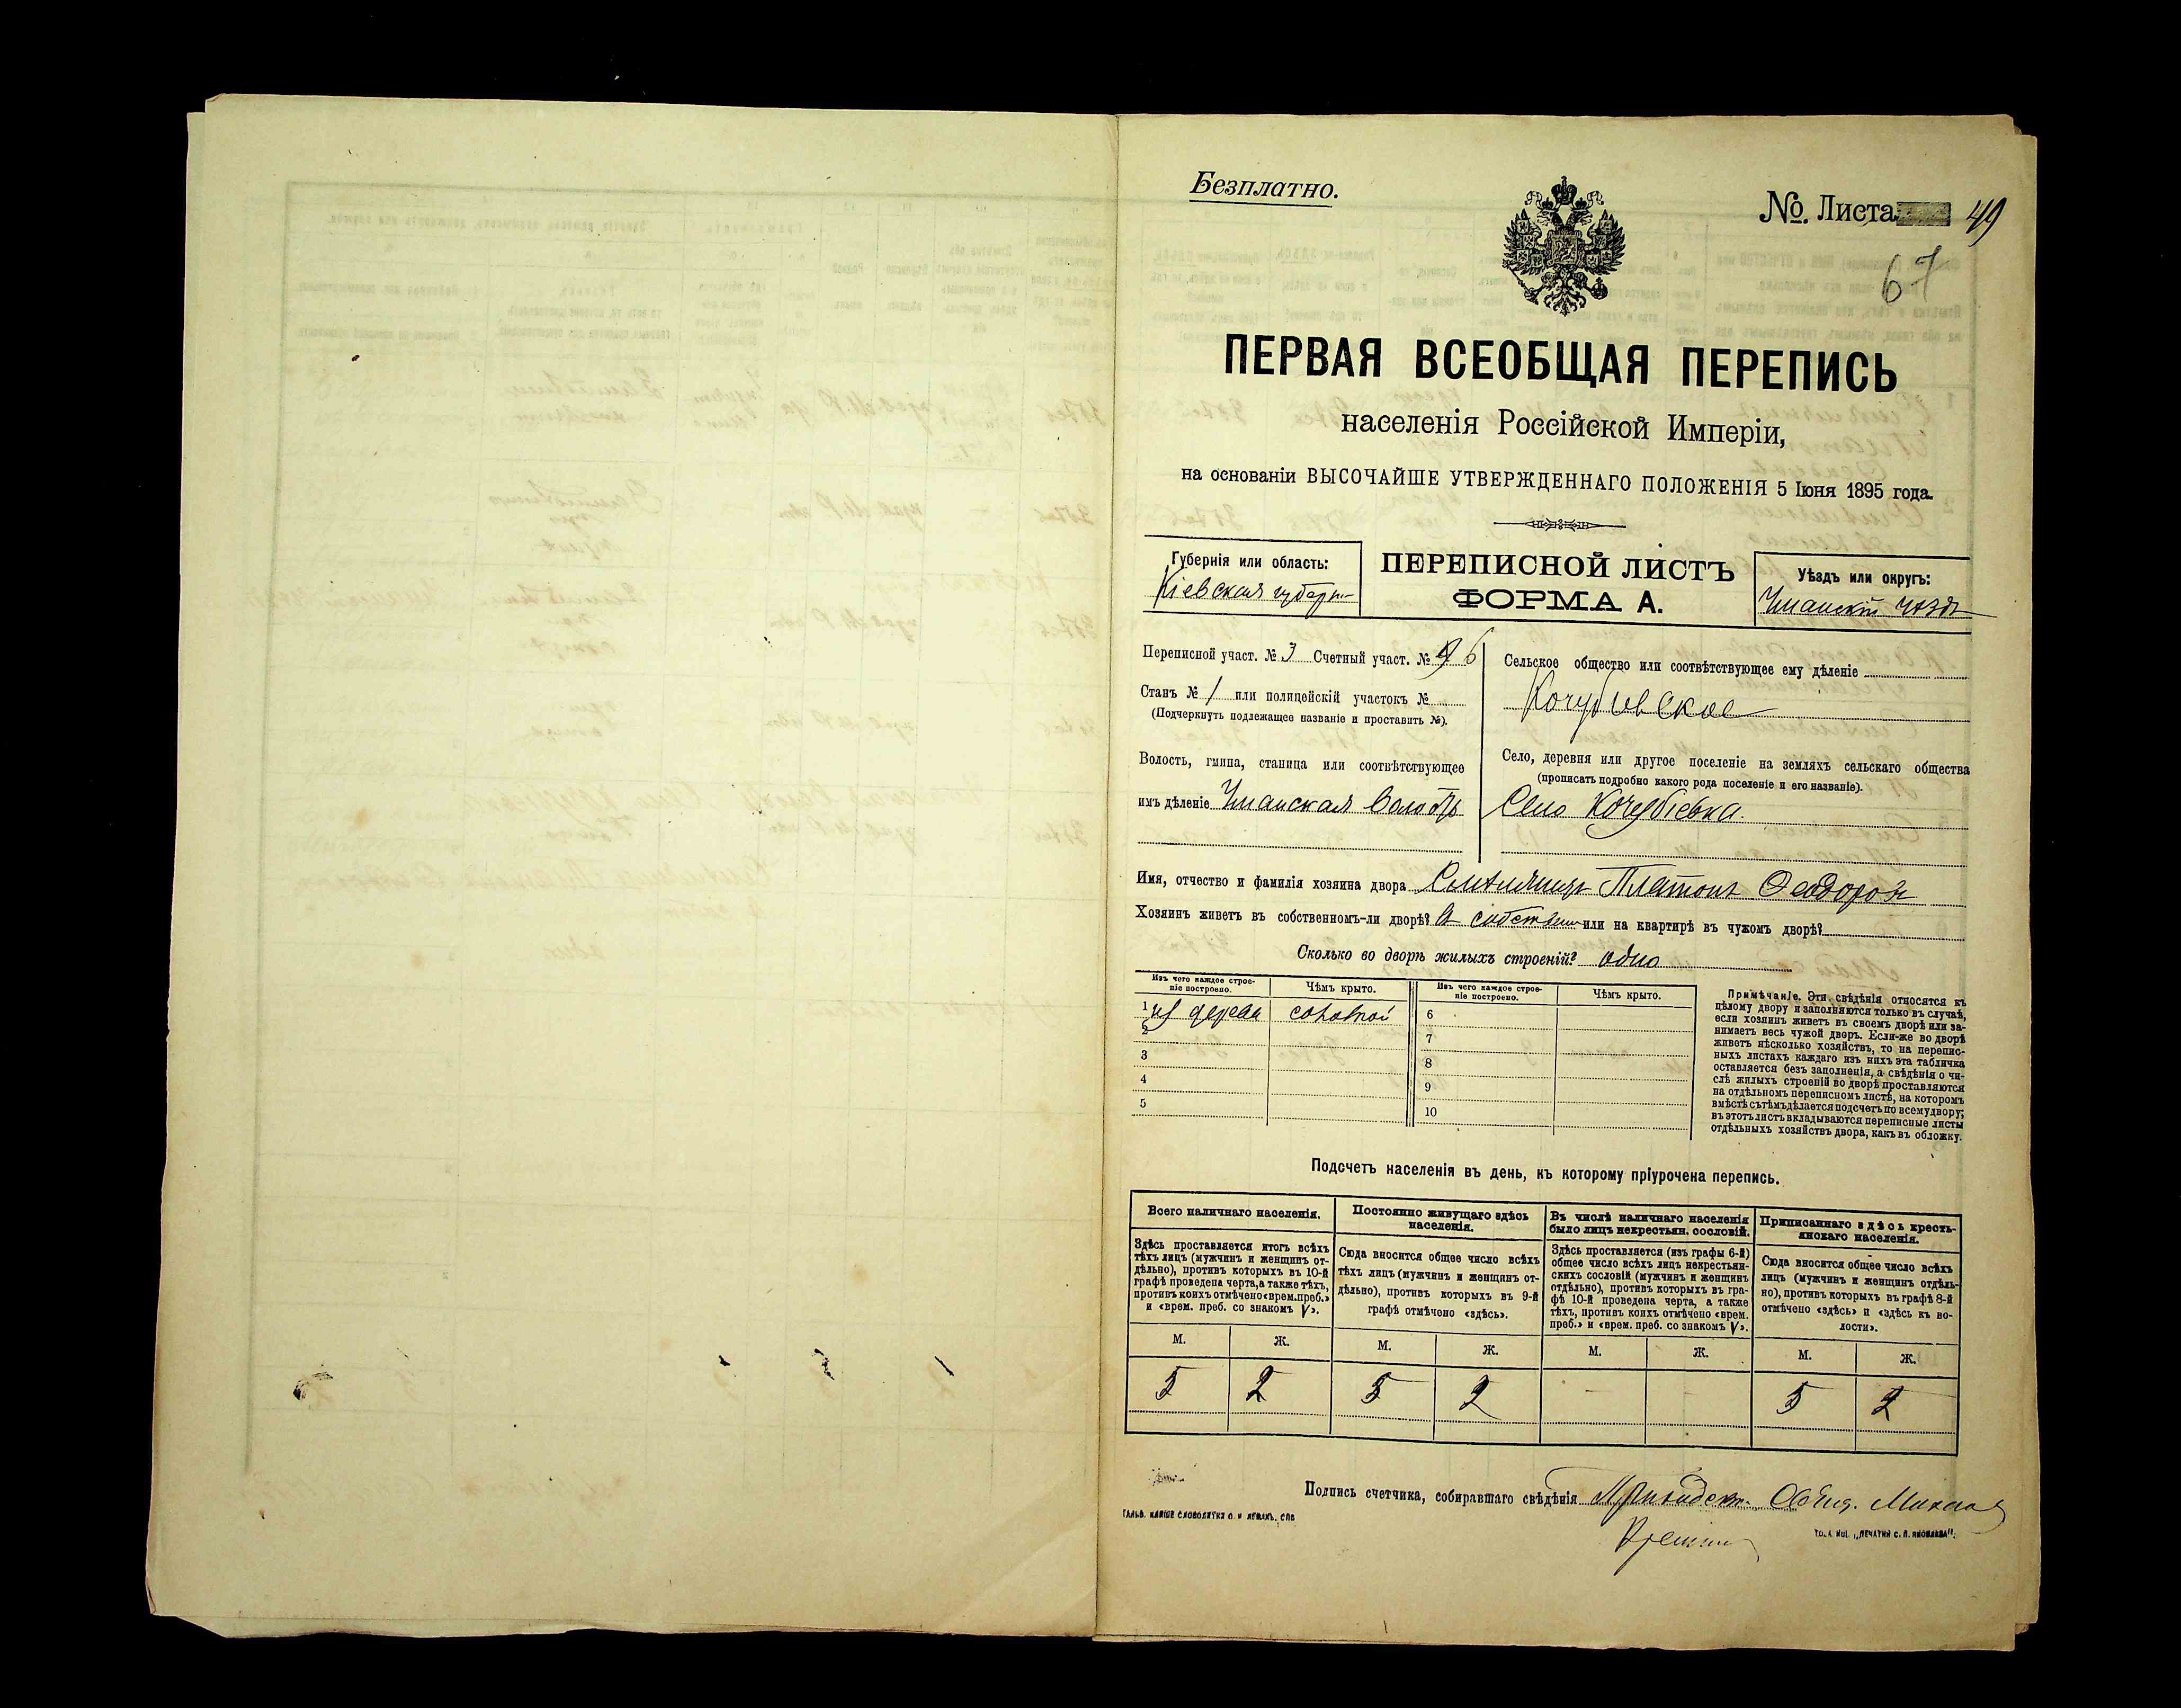 Безплатно.
№. Листа 49
67
ПЕРВАЯ ВСЕОБЩАЯ ПЕРЕПИСЬ
населенія Россійской Имперіи,
на основаніи ВЫСОЧАЙШЕ УТВЕРЖДЕННАГО ПОЛОЖЕНІЯ 5 Іюня 1895 года.
Губернія или область:
Кіевская губерн
ПЕРЕПИСНОЙ ЛИСТЪ
ФОРМА А.
Уѣздъ или округъ:
Уманскій уѣздъ
Переписной участ. № 3 Счетный участ. № 6
Станъ № 1 или полицейскій участокъ №
(Подчеркнуть подлежащее названіе и проставить №).
Волость, гмина, станица или соотвѣтствующее
имъ дѣленіе Уманская Волость
Сельское общество или соотвѣтствующее ему дѣленіе
Кочубіевское
Село, деревня или другое поселеніе на земляхъ сельскаго общества
(прописать подробно какого рода поселеніе и его названіе).
Село Кочубіевка.
Имя, отчество и фамилія хозяина двора Платонъ Ѳеодоровъ
Хозяинъ живетъ въ собственномъ-ли дворѣ? въ собствен или на квартирѣ въ чужомъ дворѣ?
Сколько во дворѣ жилыхъ строеній? одно
Изъ чего каждое строе-
ніе построено.
Чѣмъ крыто.
Изъ чего каждое строе-
ніе построено.
Чѣмъ крыто.
1 изъ дерева соломой
2
3
4
5
6
7
8
9
10
Примѣчаніе. Эти свѣдѣнія относятся къ
цѣлому двору и заполняются только въ случаѣ,
если хозяинъ живетъ въ своемъ дворѣ или за-
нимаетъ весь чужой дворъ. Если-же во дворѣ
живетъ нѣсколько хозяйствъ, то на перепис-
ныхъ листахъ каждаго изъ нихъ эта табличка
оставляется безъ заполненія, а свѣдѣнія о чи-
слѣ жилыхъ строеній во дворѣ проставляются
на отдѣльномъ переписномъ листѣ, на которомъ
вмѣстѣ съ тѣмъ дѣлается подсчетъ по всему двору;
въ этотъ листъ вкладываются переписные листы
отдѣльныхъ хозяйствъ двора, какъ въ обложку.
Подсчетъ населенія въ день, къ которому пріурочена перепись.
Всего наличнаго населенія.
Здѣсь проставляется итогъ всѣхъ
тѣхъ лицъ (мужчинъ и женщинъ от-
дѣльно), противъ которыхъ въ 10-й
графѣ проведена черта, а также тѣхъ,
противъ коихъ отмѣчено «врем. преб.»
и «врем. преб. со знакомъ V».
Постоянно живущаго здѣсь
населенія.
Сюда вносится общее число всѣхъ
тѣхъ лицъ (мужчинъ и женщинъ от-
дѣльно), противъ которыхъ въ 9-й
графѣ отмѣчено «здѣсь».
Въ числѣ наличнаго населенія
было лицъ некрестьян. сословій.
Здѣсь проставляется (изъ графы 6-й)
общее число всѣхъ лицъ некрестьян-
скихъ сословій (мужчинъ и женщинъ
отдѣльно), противъ которыхъ въ гра-
фѣ 10-й проведена черта, а также
тѣхъ, противъ коихъ отмѣчено «врем.
преб.» и «врем. преб. со знакомъ V».
Приписаннаго здѣсь кресть-
янскаго населенія.
Сюда вносится общее число всѣхъ
лицъ (мужчинъ и женщинъ отдѣль-
но), противъ которыхъ въ графѣ 8-й
отмѣчено «здѣсь» и «здѣсь къ во-
лости».
М. Ж. М. Ж. М. Ж. М. Ж.
5 2 5 2 - - 5 2
Подпись счетчика, собиравшаго свѣдѣнія